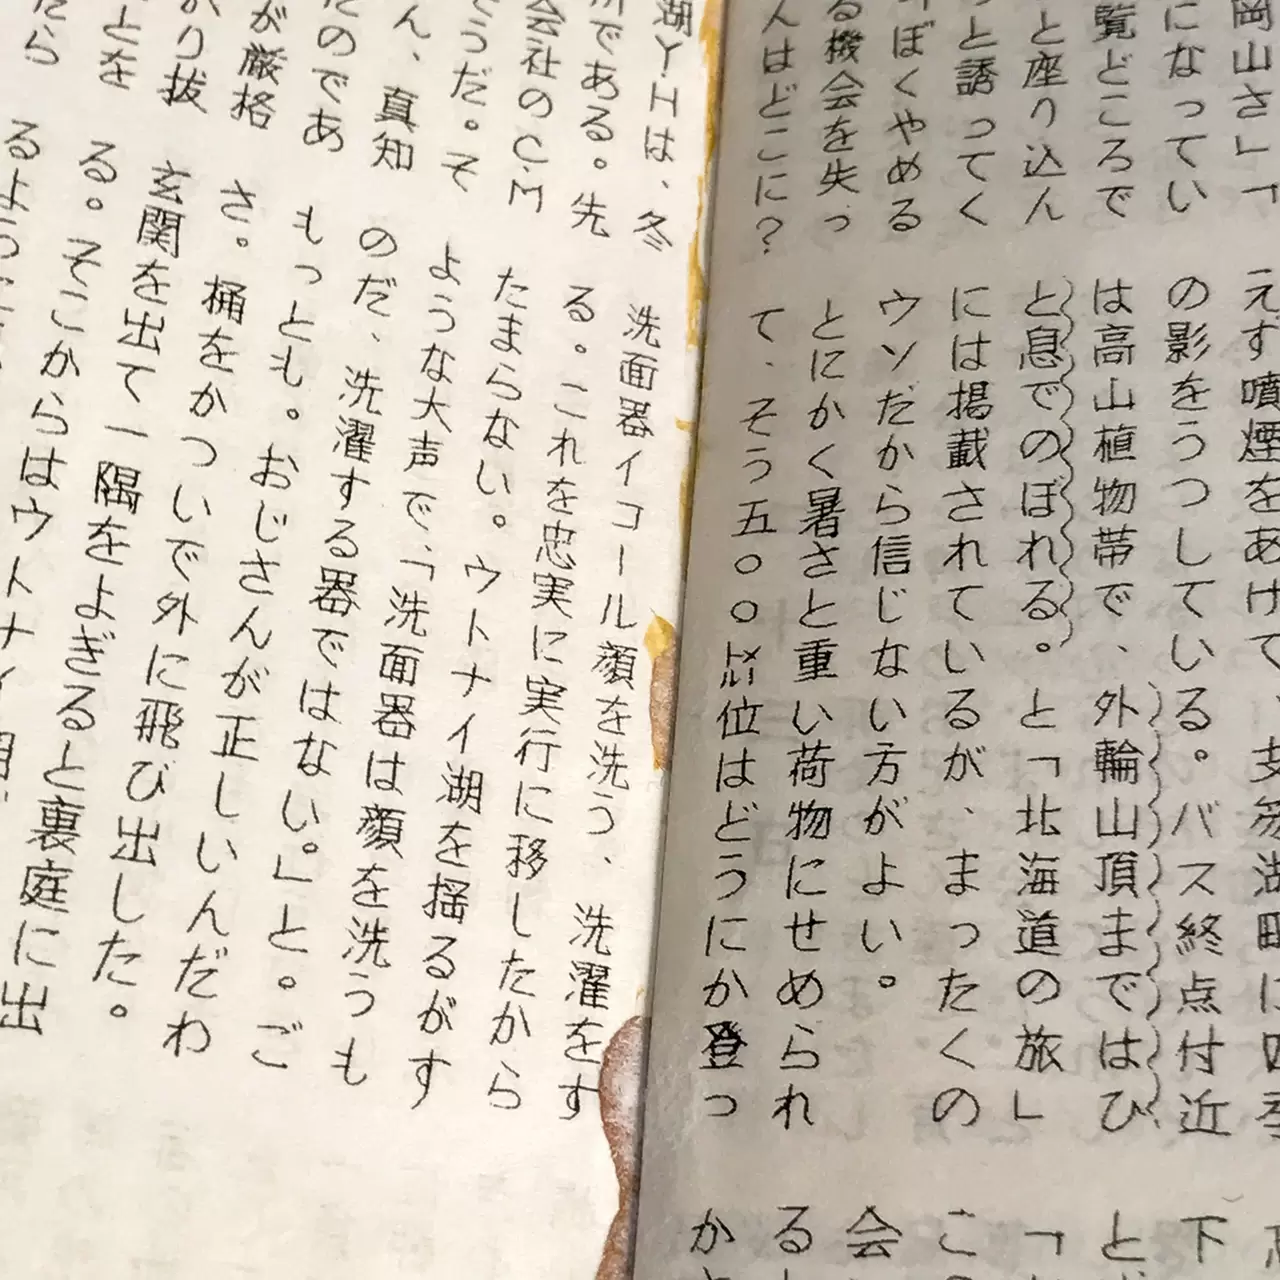 岡山さ」「
になってい
覧どころで
と座り込ん
っと誘ってく
ぼくやめる
る機会を失っ
人はどこに?
えす噴煙をあげて、支笏湖畔に四季
の影をうつしている。バス終点付近
は高山植物帯で、外輪山頂まではひ
と息でのぼれる。と「北海道の旅」
には掲載されているが、まったくの
ウソだから信じない方がよい。
とにかく暑さと重い荷物にせめられ
て、そう五〇〇㍍位はどうにか登っ
下
と
「
こ
会
る
か
湖YHは、冬
である。先
会社のC.M
うだ。そ
ん、真知
たのであ
が厳格
り抜
とを
たら
洗面器イコール顔を洗う、洗濯をす
る。これを忠実に実行に移したから
たまらない。ウトナイ湖を揺るがす
ような大声で、「洗面器は顔を洗うも
のだ、洗濯する器ではない。」と。ご
もっとも。おじさんが正しいんだわ
さ。桶をかついで外に飛び出した。
玄関を出て一隅をよぎると裏庭に出
る。そこからはウトナイ湖
るよう